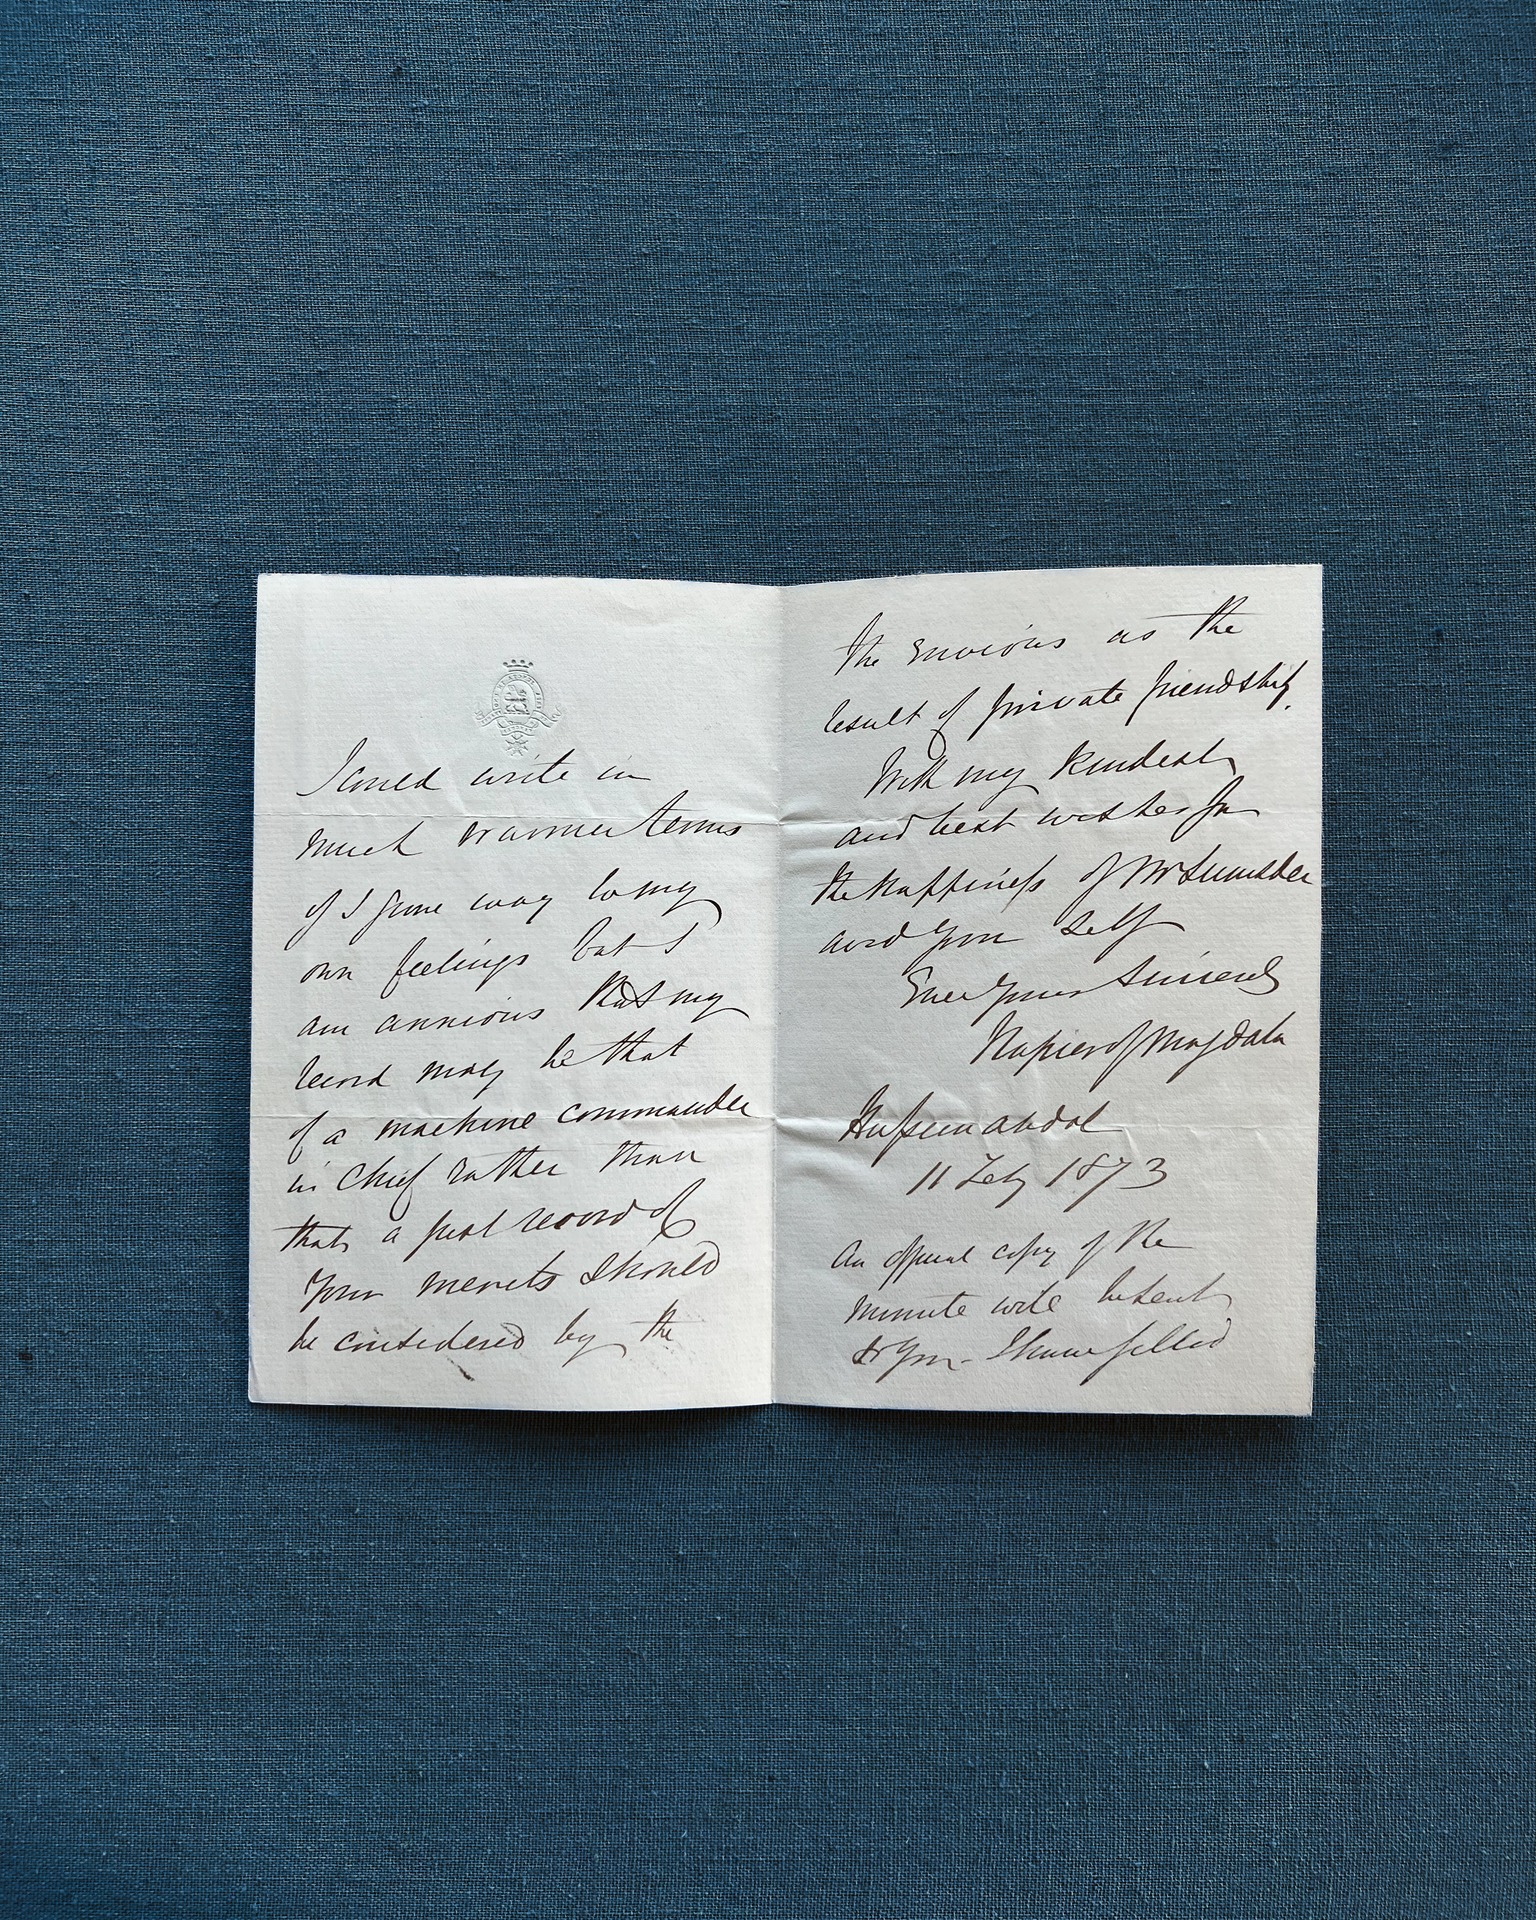 I could write in
much warmer terms
if I gave way to my
own feelings but I
am anxious that my
record may be that
of a machine commander
in Chief rather than
that a just record of
Your merits should
be considered by the
the envious as the
result of private friendship.
With my kindest
and best wishes for
the happiness of Mrs Lumsden
and Your self
Ever Yours Sincerely
Napier of Magdala
Hussun abdal
11 Feby 1873
An official copy of the
minute will be sent
to You. I have filled